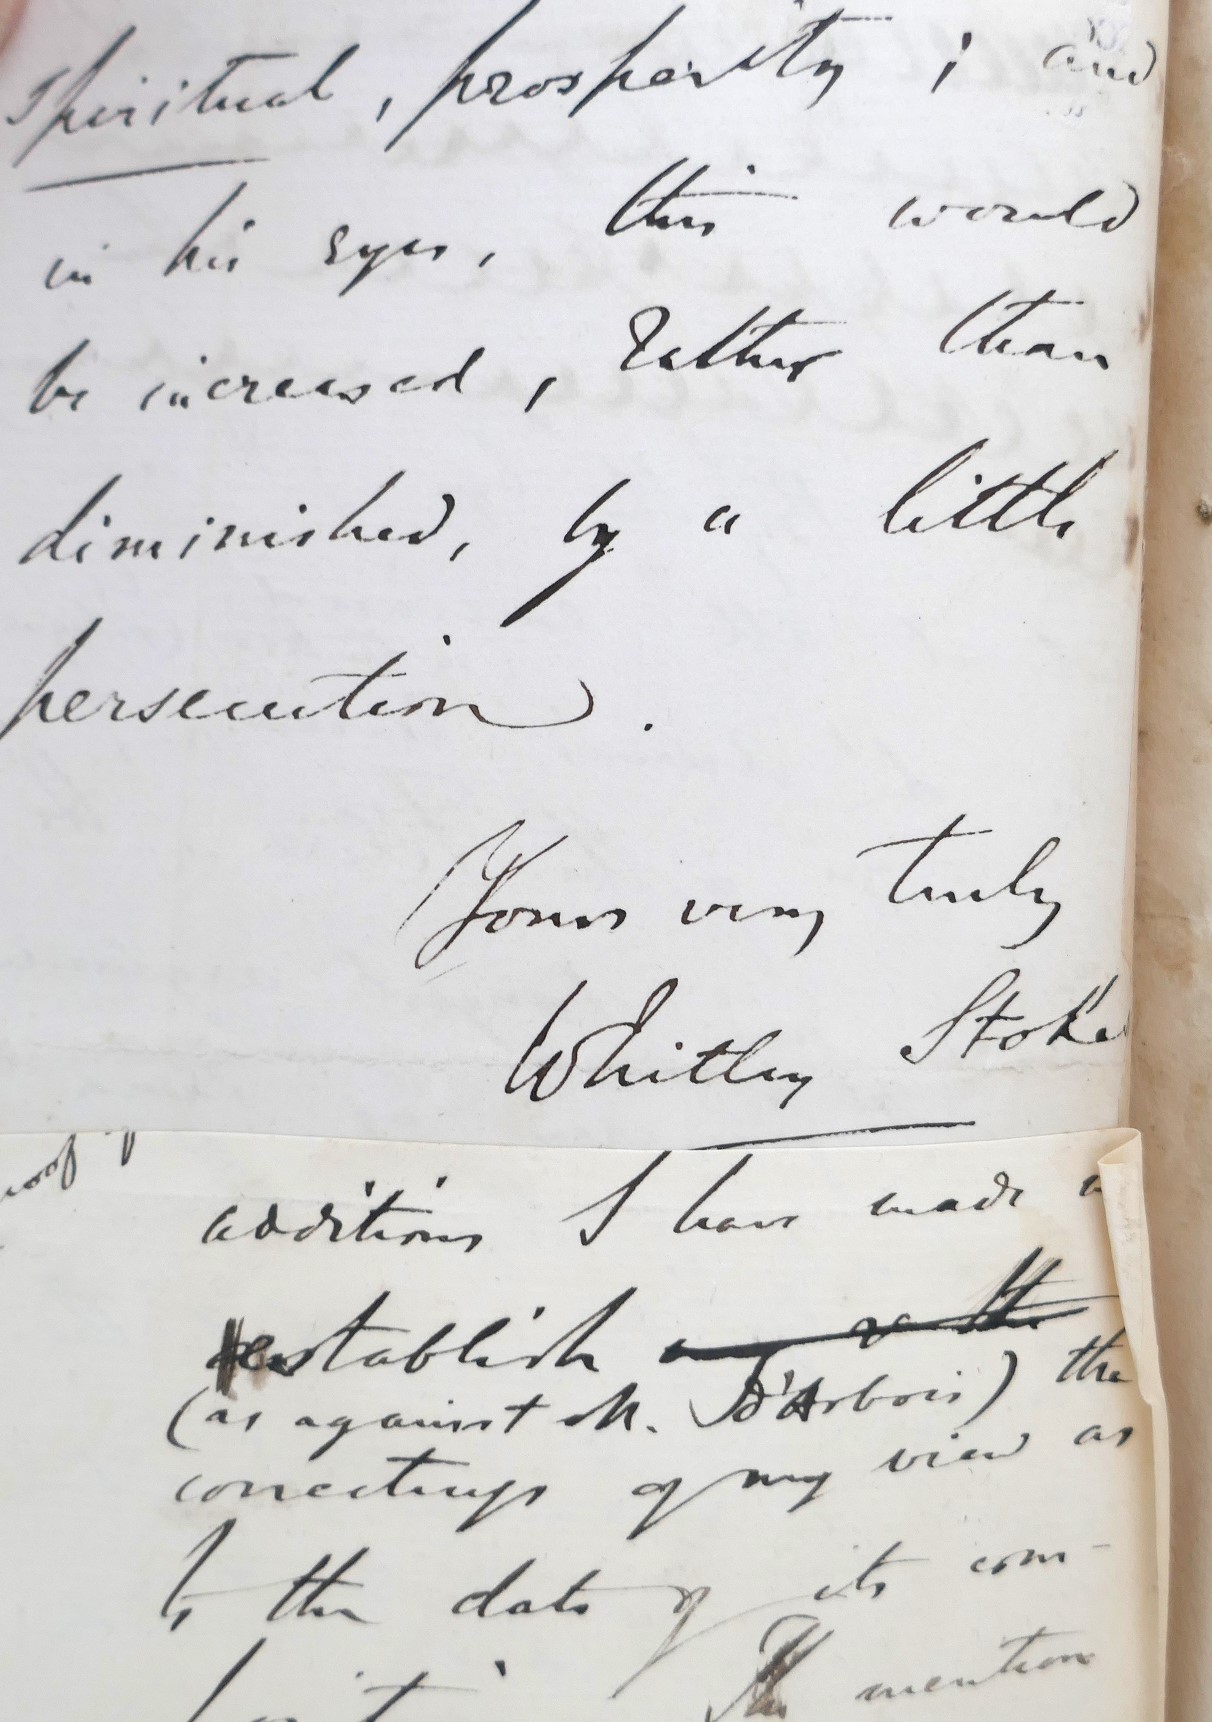 spiritual, prosperity; and
in his eyes, this would
be increased, rather than
diminished, by a little
persecution.
Yours very truly
Whitley Stokes
additions I have made
establish
(as against M. d'Arbois) the
correctness of my view as
to the date of its com-
The mention